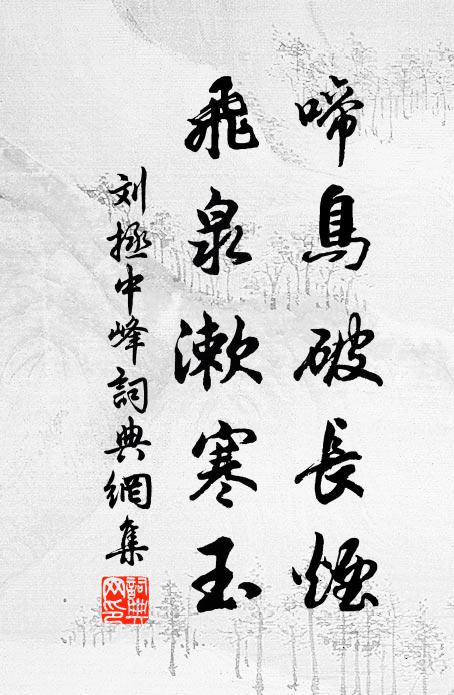 啼鳥破長煙
飛泉漱寒玉
刘拯中峰詞典網集
詞典